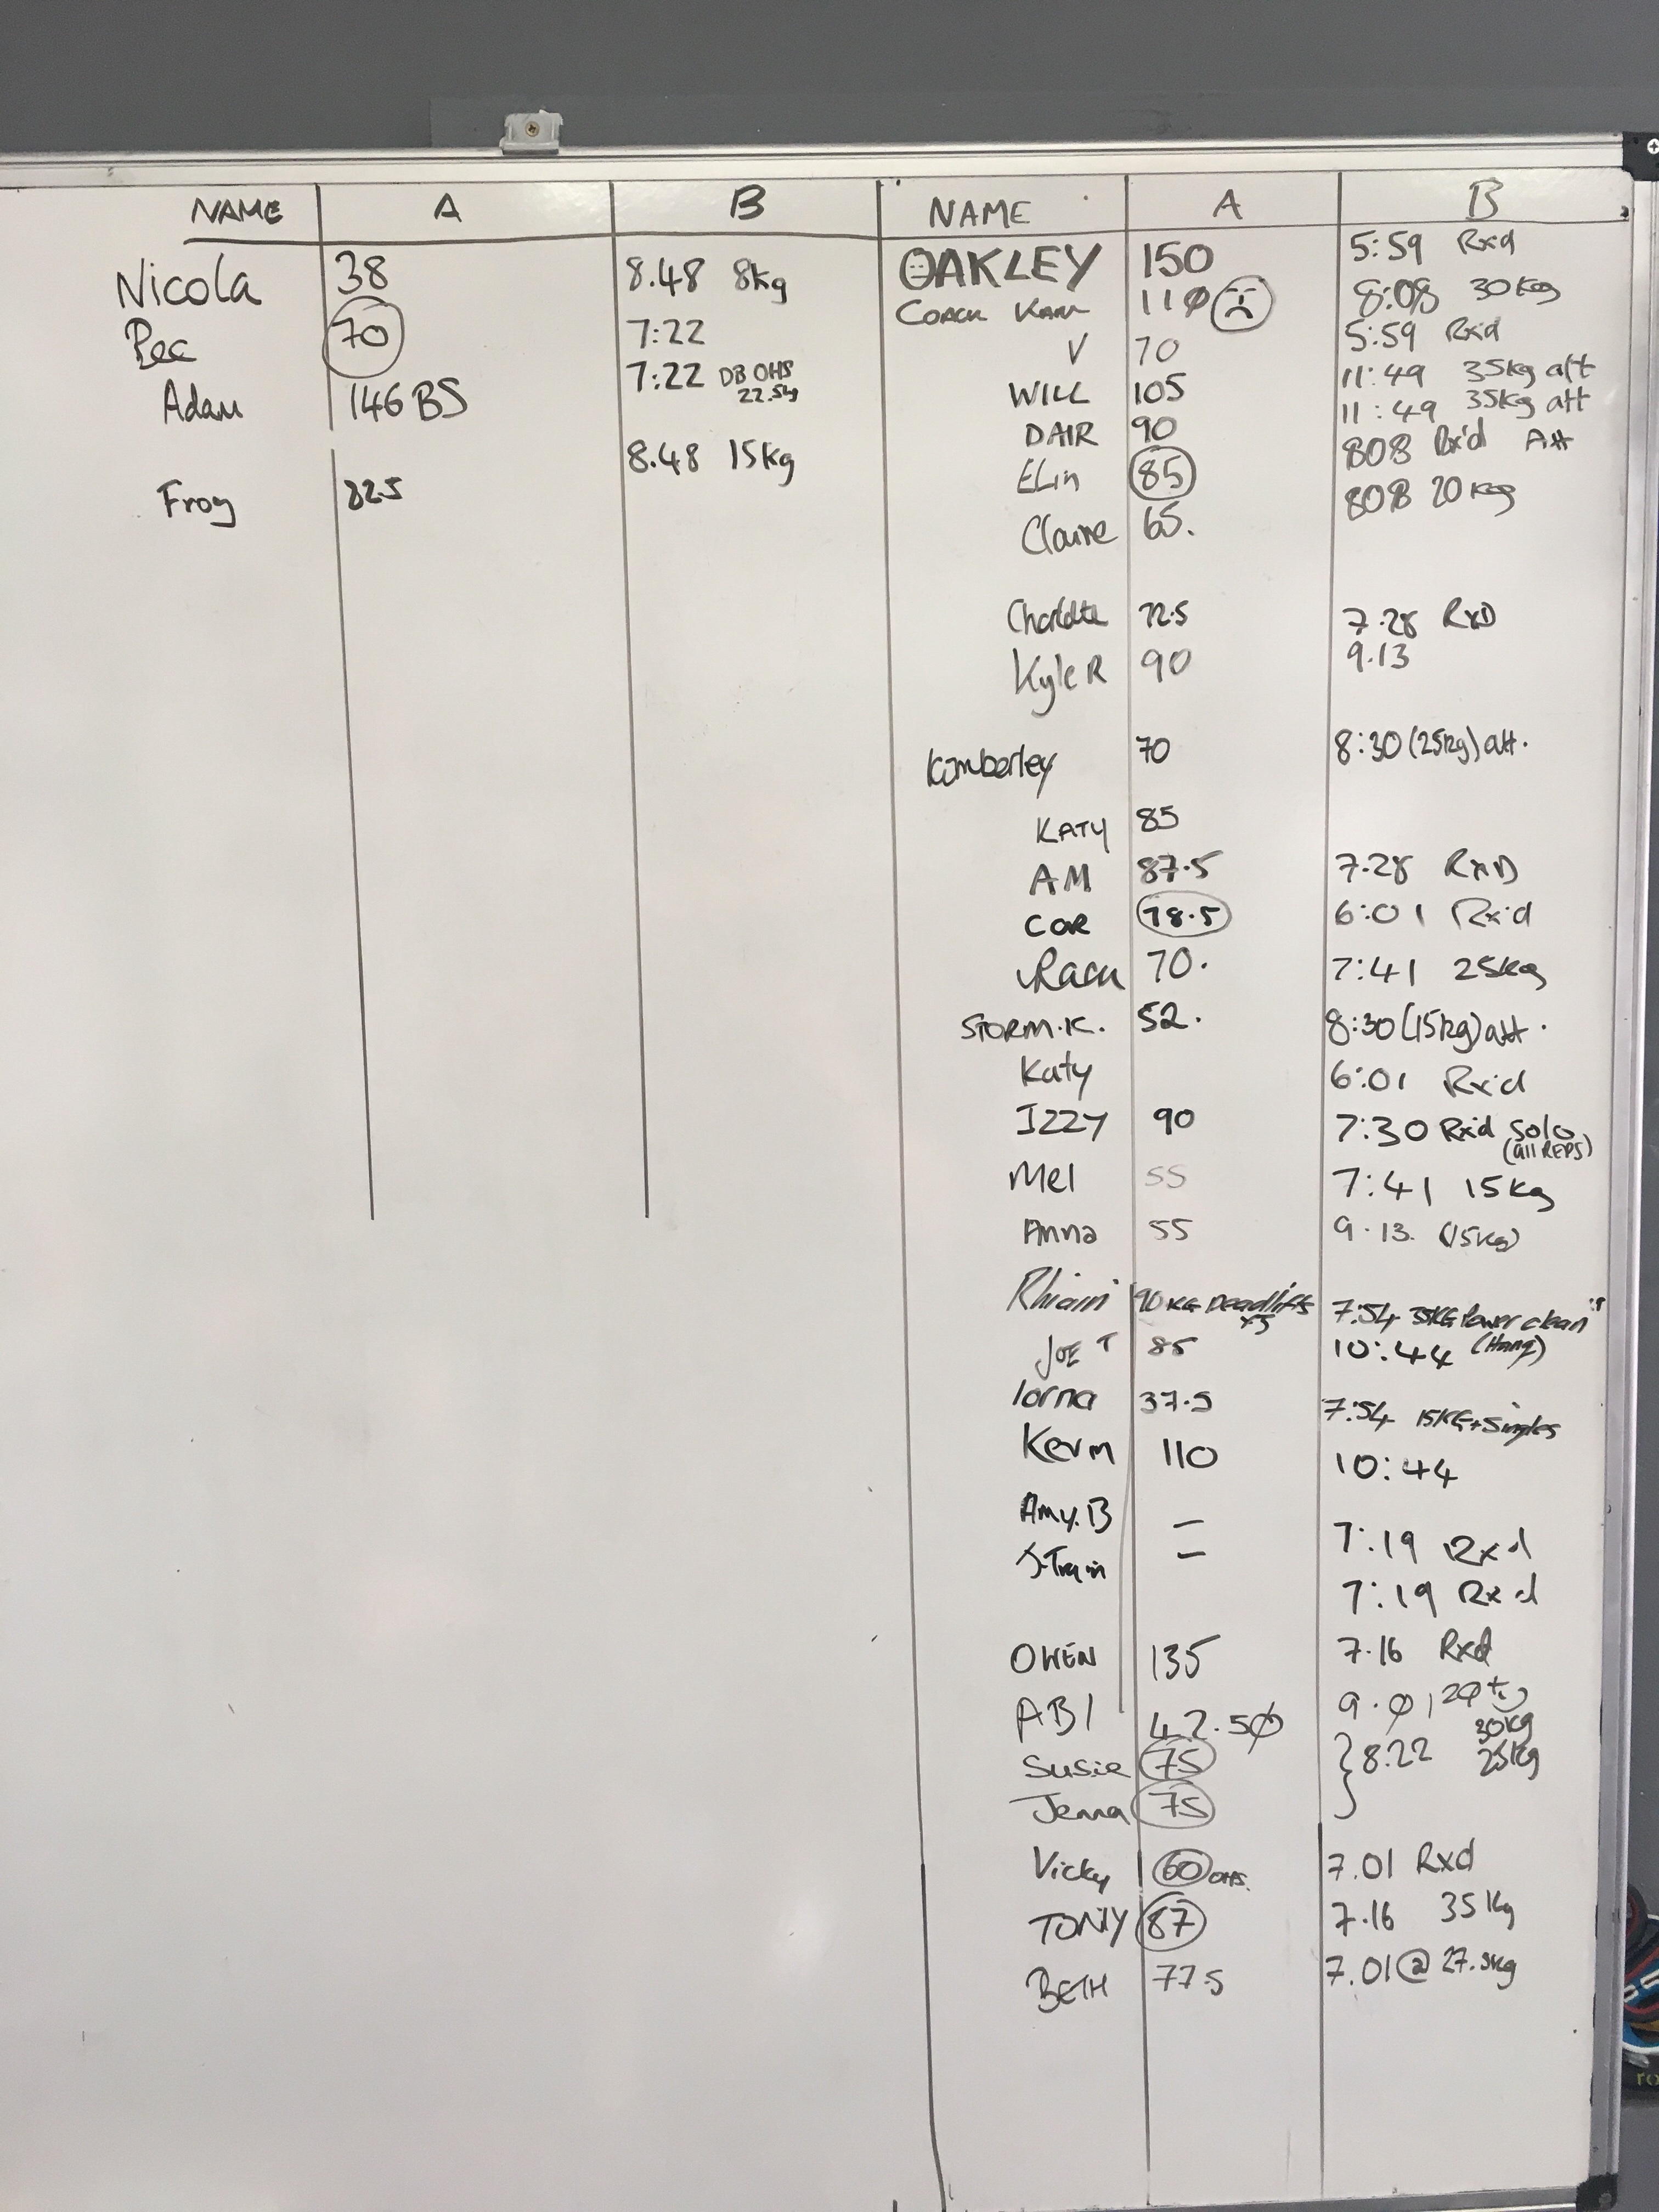 NAME A B
Nicola 38 8.48 8kg
Bec 70 7:22
Adam 146 BS 7:22 DB OHS
22.5kg
8.48 15kg
Frog 82.5
NAME A B
OAKLEY 150 5:59 Rxd
COACH 110 8:08 30kg
V 70 5:59 Rxd
WILL 105 11:49 35kg alt
DAIR 90 11:49 35kg alt
ELin 85 808 Rx'd Alt
Claire 65. 808 20kg
Charlotte 72.5 7.28 RxD
Kyle R 90 9.13
Kimberley 70 8:30 (25kg) alt.
KATY 85
AM 87.5 7.28 RxD
COR 78.5 6:01 Rx'd
70. 7:41 25kg
STORM.K. 52. 8:30 (15kg) alt.
Katy 6:01 Rx'd
IZZY 90 7:30 Rxd Solo
(all REPS)
Mel 55 7:41 15kg
Anna 55 9.13. (15kg)
Rhiain 90KG Deadlifts 7:54 35KG Power clean
x5 (Hang)
JOE T 85 10:44
lorna 37.5 7:54 15KG+Singles
Kevin 110 10:44
Amy.B – 7:19 Rxd
J-Train – 7:19 Rxd
OWEN 135 7.16 Rxd
ABI 42.50 9.01
30kg
Susie 75 } 8.22 25kg
Jenna 75
Vicky 60 OHS. 7.01 Rxd
TONY 87 7.16 35kg
BETH 77.5 7.01 @ 27.5kg